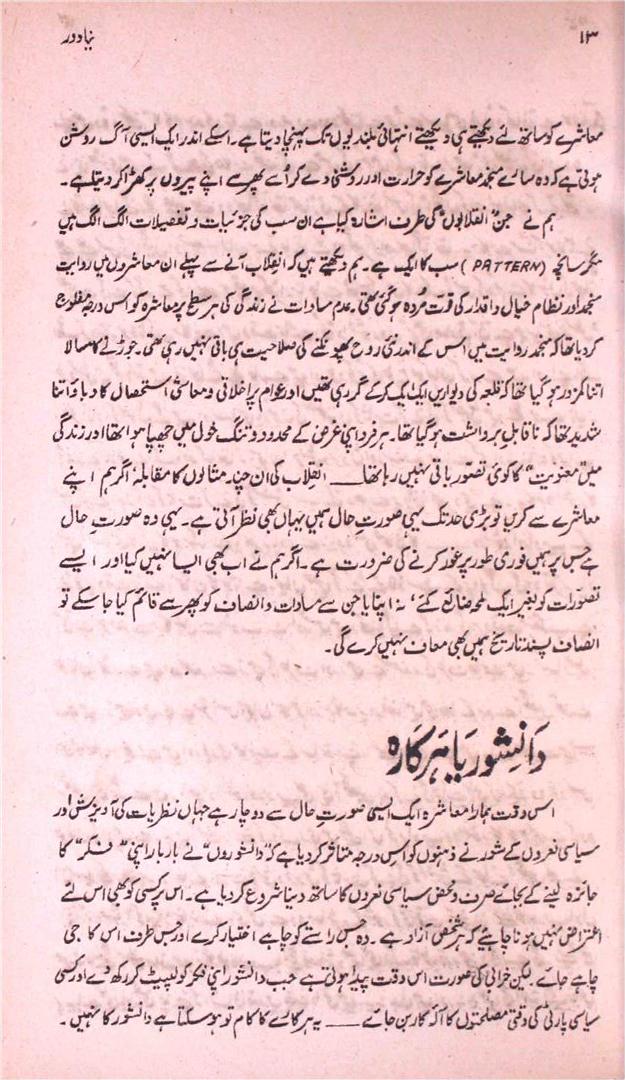 ۱۳ نیا دور
معاشرے کو ساتھ لئے دیکھتے ہی دیکھتے انتہائی بلندیوں تک پہنچا دیتا ہے۔ اسکے اندر ایک ایسی آگ روشن
ہوتی ہے کہ وہ سارے منجمد معاشرے کو حرارت اور روشنی دے کر اُسے پھر سے اپنے پیروں پر کھڑا کر دیتا ہے۔
ہم نے جن "انقلابوں" کی طرف اشارہ کیا ہے ان سب کی جزئیات و تفصیلات الگ الگ ہیں
مگر سانچہ (PATTERN) سب کا ایک ہے۔ ہم دیکھتے ہیں کہ انقلاب آنے سے پہلے ان معاشروں میں روایت
منجمد اور نظام خیال و اقدار کی قوت مُردہ ہو گئی تھی۔ عدم مساوات نے زندگی کی ہر سطح پر معاشرہ کو اس درجہ مفلوج
کر دیا تھا کہ منجمد روایت میں اس کے اندر نئی روح پھونکنے کی صلاحیت ہی باقی نہیں رہی تھی۔ جوڑنے کا مسالا
اتنا کمزور ہو گیا تھا کہ قلعہ کی دیواریں ایک ایک کر کے گر رہی تھیں اور عوام پر اخلاقی و معاشی استحصال کا دباؤ اتنا
شدید تھا کہ ناقابلِ برداشت ہو گیا تھا۔ ہر فرد اپنی غرض کے محدود و تنگ خول میں چھپا ہوا تھا اور زندگی
میں "معنویت" کا کوئی تصوّر باقی نہیں رہا تھا ــــــ انقلاب کی ان چند مثالوں کا مقابلہ اگر ہم اپنے
معاشرے سے کریں تو بڑی حد تک یہی صورتِ حال ہمیں یہاں بھی نظر آتی ہے۔ یہی وہ صورتِ حال
ہے جس پر ہمیں فوری طور پر غور کرنے کی ضرورت ہے۔ اگر ہم نے اب بھی ایسا نہیں کیا اور ایسے
تصوّرات کو بغیر ایک لمحہ ضائع کئے، نہ اپنایا جن سے مساوات و انصاف کو پھر سے قائم کیا جا سکے تو
انصاف پسند تاریخ ہمیں کبھی معاف نہیں کرے گی۔
دَانِشور یَا ہَرکَارہ
اس وقت ہمارا معاشرہ ایک ایسی صورتِ حال سے دوچار ہے جہاں نظریات کی آویزش اور
سیاسی نعروں کے شور نے ذہنوں کو اس درجہ متاثر کر دیا ہے کہ "دانشوروں" نے بار بار اپنی "فکر" کا
جائزہ لینے کے بجائے صرف و محض سیاسی نعروں کا ساتھ دینا شروع کر دیا ہے۔ اس پر کسی کو بھی اس لئے
اعتراض نہیں ہونا چاہیئے کہ ہر شخص آزاد ہے۔ وہ جس راستے کو چاہے اختیار کرے اور جس طرف اس کا جی
چاہے جائے۔ لیکن خرابی کی صورت اس وقت پیدا ہوتی ہے جب دانشور اپنی فکر کو لپیٹ کر رکھ دے اور کسی
سیاسی پارٹی کی وقتی مصلحتوں کا آلہ کار بن جائے ــــــ یہ ہرکارے کا کام تو ہو سکتا ہے دانشور کا نہیں۔